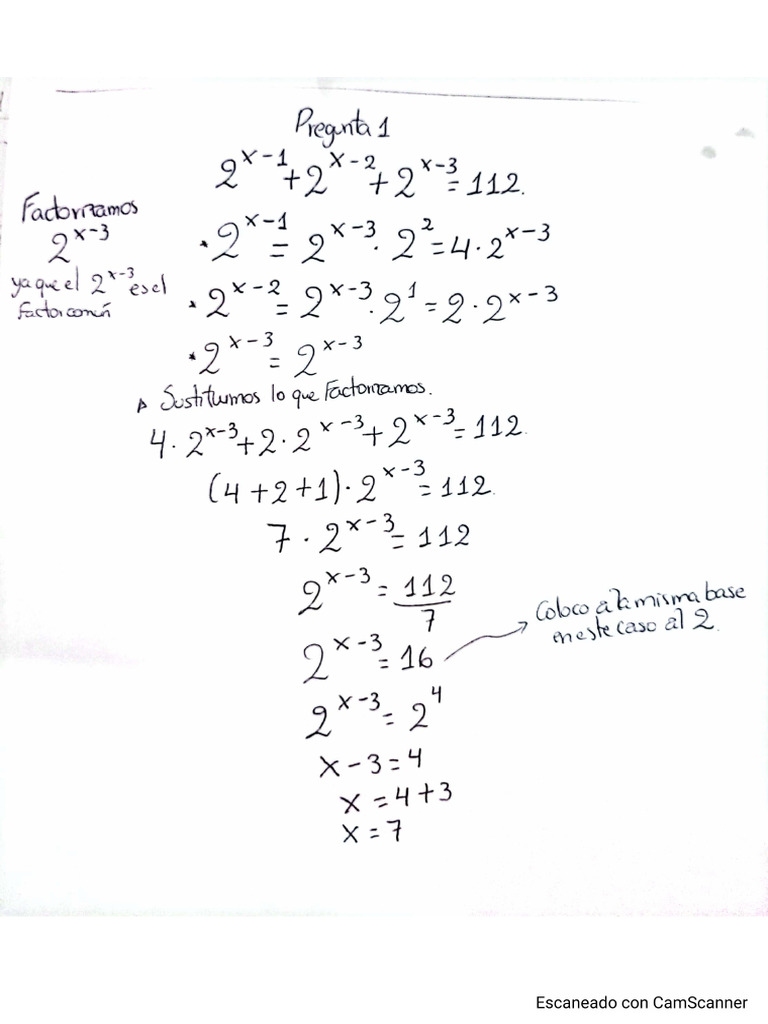 Pregunta 1
2^{x-1} + 2^{x-2} + 2^{x-3} = 112.
Factorizamos
2^{x-3}
ya que el 2^{x-3} es el
factor común
* 2^{x-1} = 2^{x-3} · 2^2 = 4 · 2^{x-3}
* 2^{x-2} = 2^{x-3} · 2^1 = 2 · 2^{x-3}
* 2^{x-3} = 2^{x-3}
▷ Sustituimos lo que Factorizamos.
4 · 2^{x-3} + 2 · 2^{x-3} + 2^{x-3} = 112.
(4 + 2 + 1) · 2^{x-3} = 112.
7 · 2^{x-3} = 112
2^{x-3} = 112/7
2^{x-3} = 16
Coloco a la misma base
en este caso al 2.
2^{x-3} = 2^4
x - 3 = 4
x = 4 + 3
x = 7
Escaneado con CamScanner